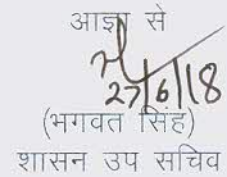 आज्ञा से
27/6/18
(भगवत सिंह)
शासन उप सचिव